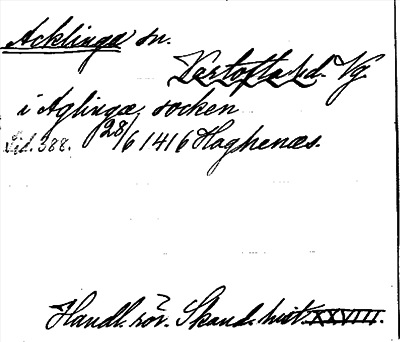 Acklinga sn.
Vartofta hd. Vg
i Aglingæ socken
Sid. 388. 28/6 1416 Haghenæs.
Handl. rör. Skand. hist. XXVIII.